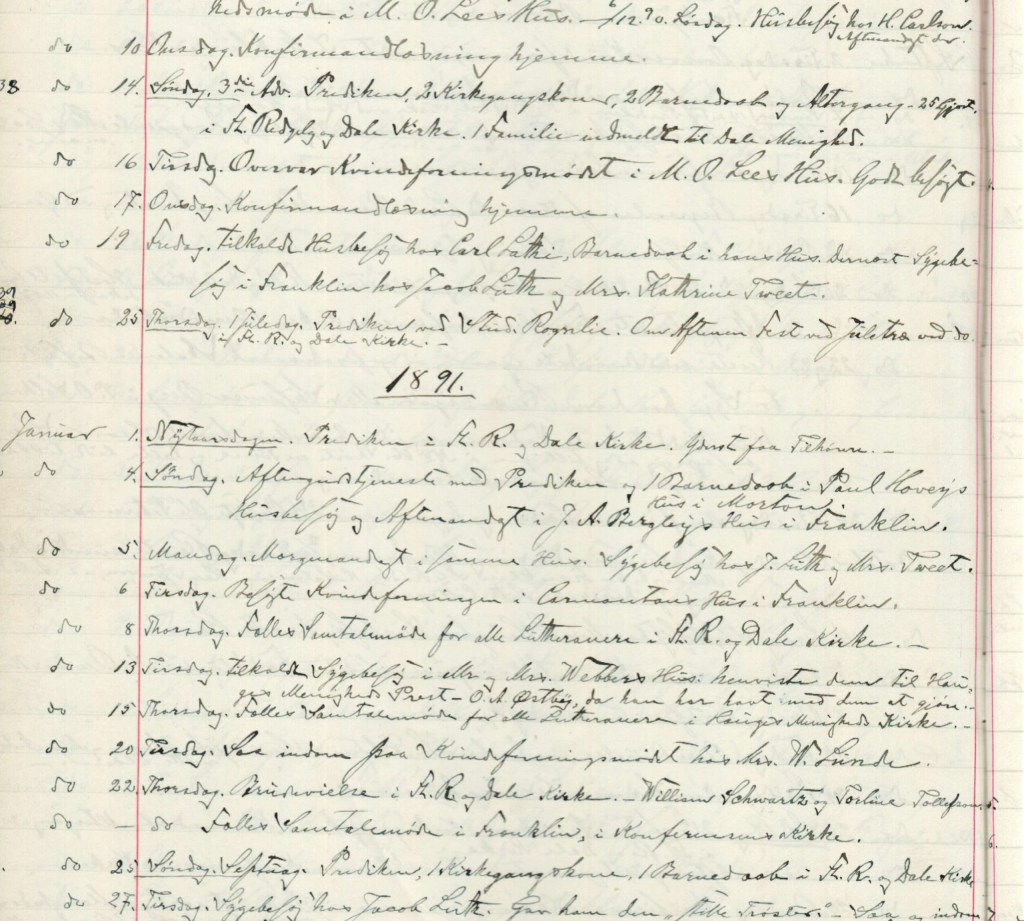 hedsmøde i M. O. Lees Hus. – 6/12 90. Lørdag. Husbesøg hos H. Carlson.
Aftenandagt der.
do 10 Onsdag. Konfirmandlæsning hjemme.
38 do 14. Søndag. 3die Adv. Prediken, 2 Kirkegangskoner, 2 Barnedaab og Altergang – 25 Gjest.
i Ft. Ridgely og Dale Kirke. 1 Familie indmeldt til Dale Menighed.
do 16 Tirsdag. Overvar Kvindeforeningsmødet i M. O. Lees Hus. Godt besøgt.
do 17. Onsdag. Konfirmandlæsning hjemme.
do 19 Fredag. tilkaldt Husbesøg hos Carl Lathi, Barnedaab i hans Hus. Dernæst Sygebe-
søg i Franklin hos Jacob Luth og Mrs. Kathrine Tweet.
39
do 25 Thorsdag. 1 Juledag. Prediken ved Stud. Rognlie. Om Aftenen Fest ved Juletræ ved do.
i Ft. R. og Dale Kirke. –
1891.
Januar 1. Nytaarsdagen. Prediken i Ft. R. og Dale Kirke. Yderst faa Tilhørere. –
do 4. Søndag. Aftengudstjeneste med Prediken og 1 Barnedaab i Paul Hovers
Hus i Morton.
Husbesøg og Aftenandagt i J. A. Bergleys Hus i Franklin.
do 5. Mandag. Morgenandagt i samme Hus. Sygebesøg hos J. Luth og Mrs. Tweet.
do 6 Tirsdag. Besøgte Kvindeforeningen i Hus i Franklin.
do 8 Thorsdag. Fælles Samtalemøde for alle Lutheranere i Ft. R. og Dale Kirke. –
do 13 Tirsdag. tilkaldt Sygebesøg i Mr og Mrs. Webbers Hus. henviste dem til Hau-
ges Menigheds Prest – O. A. Østby, da han har havt med dem at gjøre. –
do 15 Thorsdag. Fælles Samtalemøde for alle Lutheranere i Hauges Menigheds Kirke. –
do 20 Tirsdag. Saa indom paa Kvindeforeningsmødet hos Mrs. W. Lunde.
do 22. Thorsdag. Brudevielse i Ft. R. og Dale Kirke. – William Schwartz og Torline Tollefson
do – do Fælles Samtalemøde i Franklin, i Konferensens Kirke.
do 25 Søndag. Septuag. Prediken, 1 Kirkegangskone, 1 Barnedaab i Ft. R. og Dale Kirke
do 27. Tirsdag. Sygebesøg hos Jacob Luth. Gav ham den „stille Trøster" – Saa indom